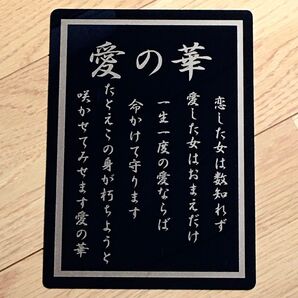 愛の華
恋した女は数知れず
愛した女はおまえだけ
一生一度の愛ならば
命かけて守ります
たとえこの身が朽ちようと
咲かせてみせます愛の華